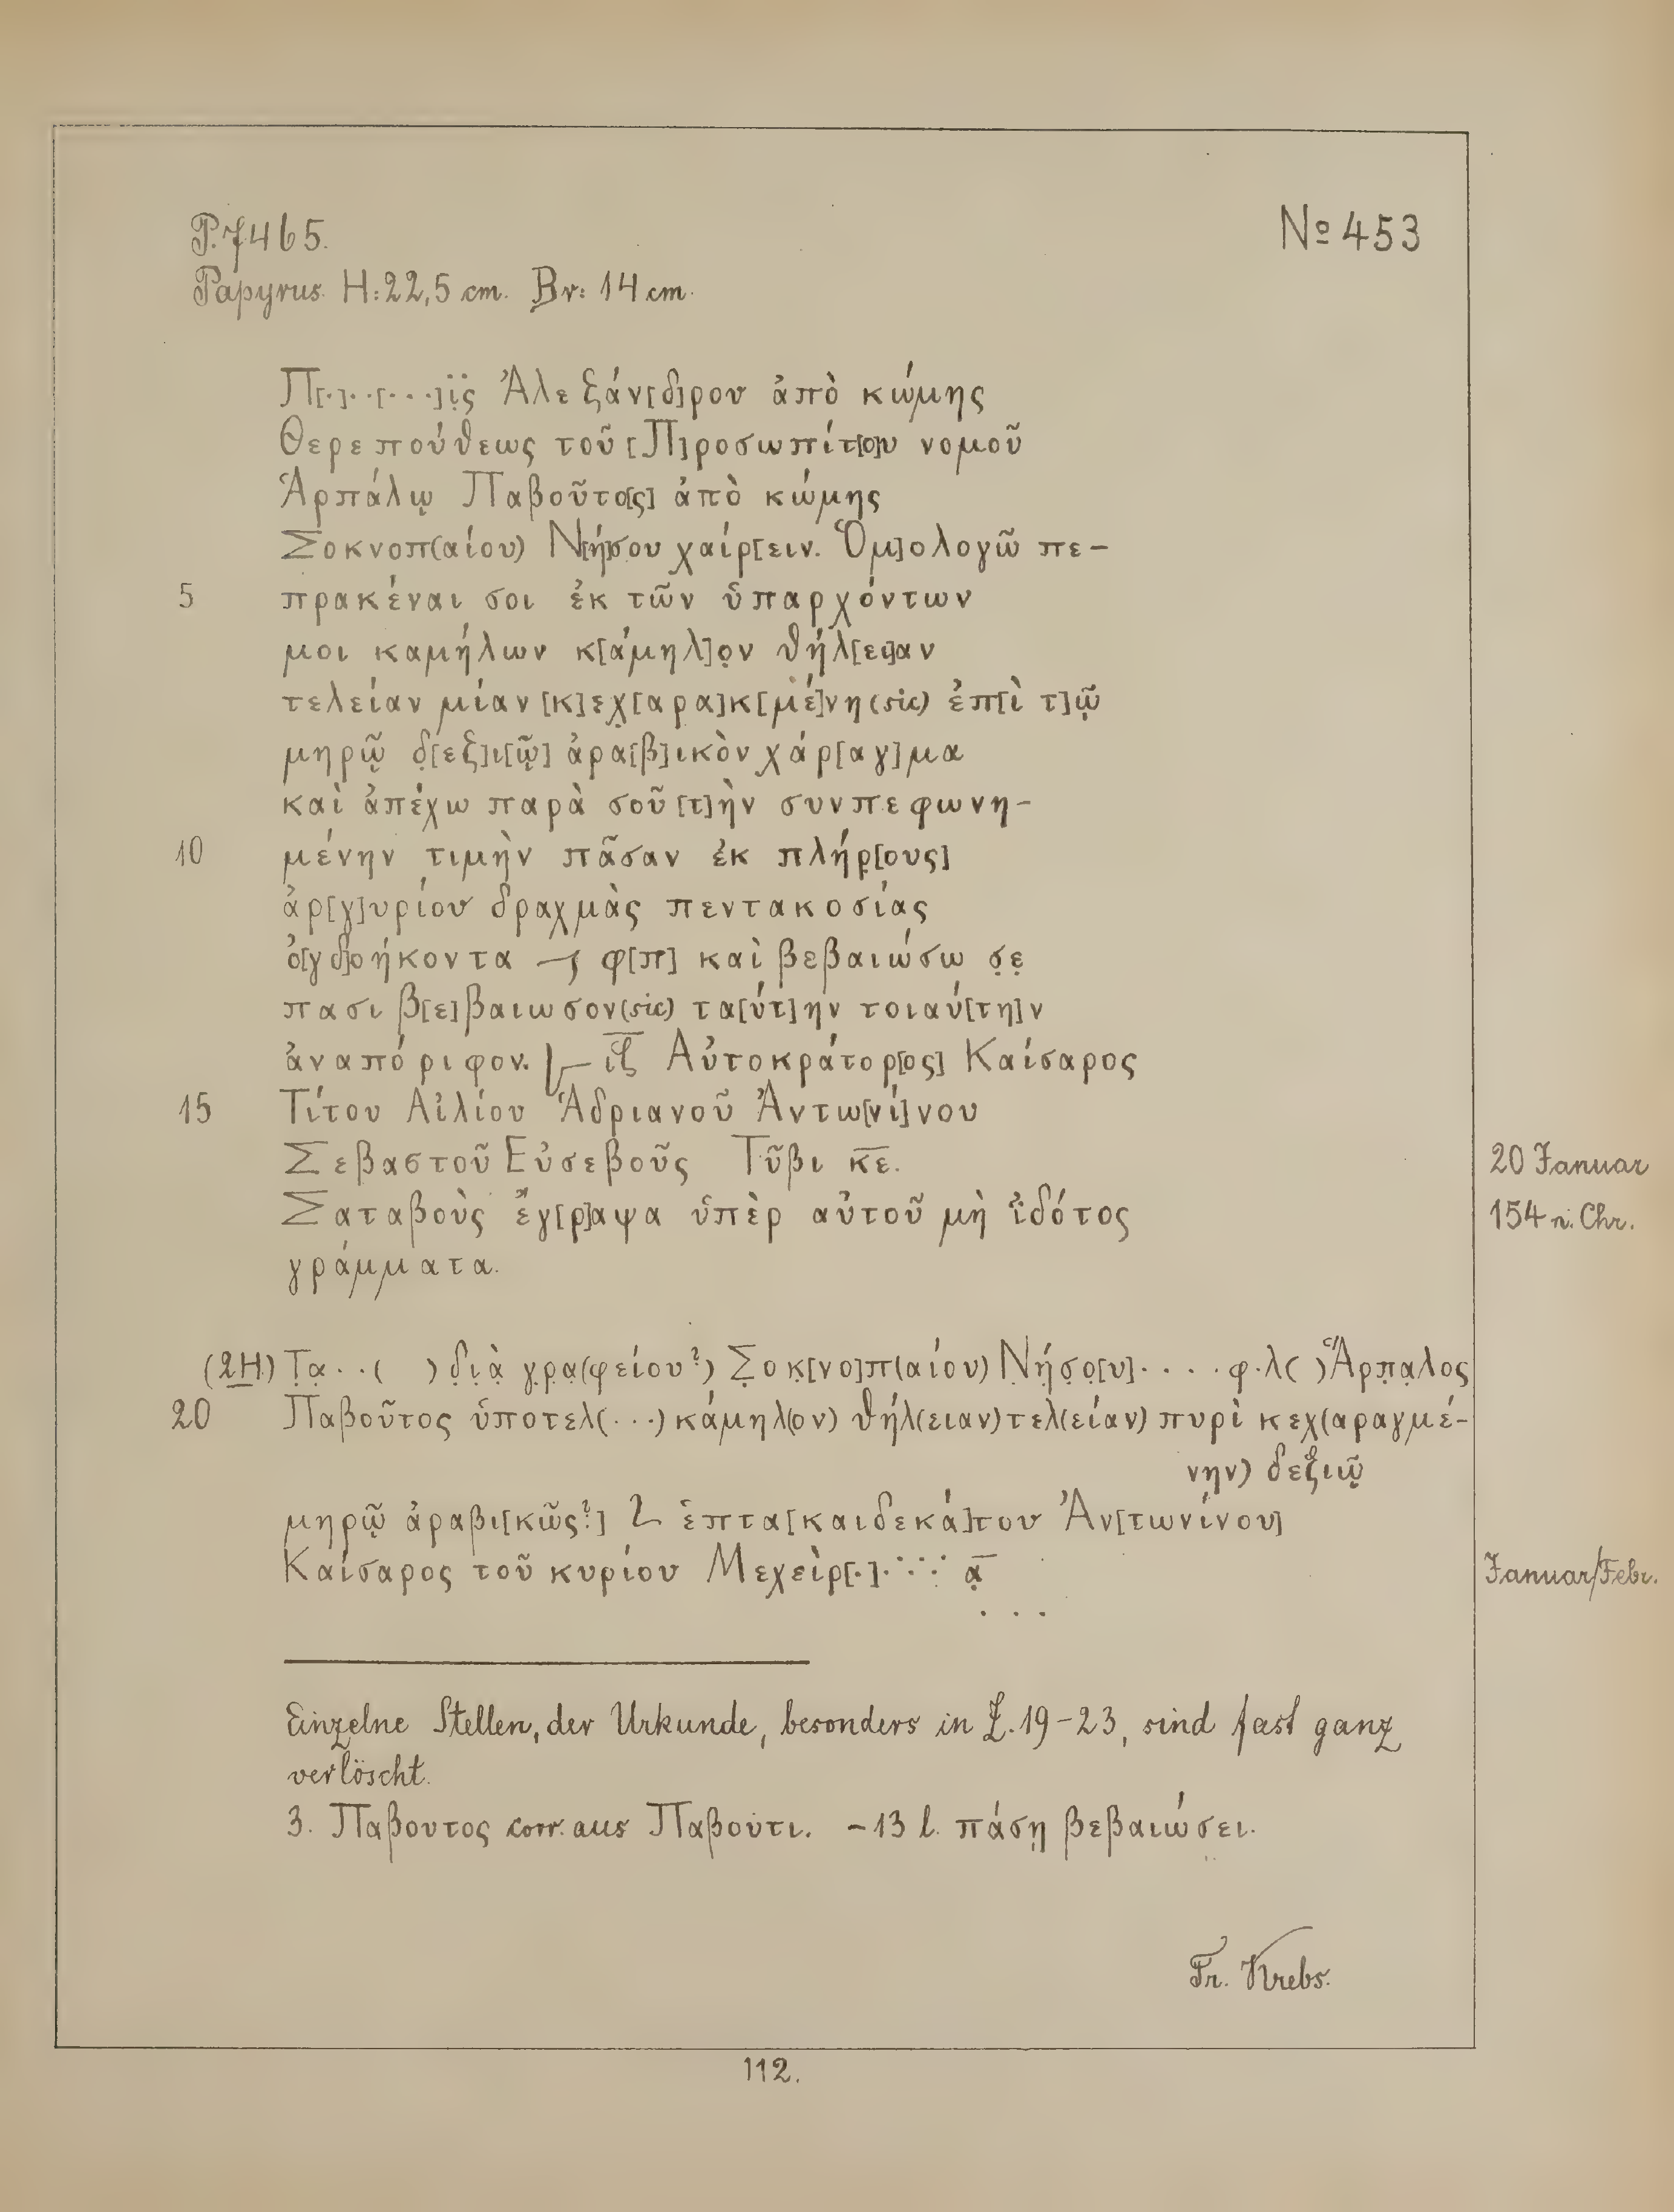 P. 7465. № 453
Papyrus. H: 22,5 cm. Br: 14 cm.
Π[.]..[...]ϊ̣ς Ἀλεξάν[δ]ρου ἀπὸ κώμης
Θερεπούθεως τοῦ [Π]ροσωπίτ[ο]υ νομοῦ
Ἁρπάλῳ Παβοῦτο[ς] ἀπὸ κώμης
Σοκνοπ(αίου) Ν[ή]σου χαίρ[ειν. Ὁμ]ολογῶ πε-
5 πρακέναι σοι ἐκ τῶν ὑπαρχόντων
μοι καμήλων κ[άμηλ]ο̣ν θήλ[ει]αν
τελείαν μίαν [κ]εχ̣[αρα]κ[μέ]νη (sic) ἐπ[ὶ τ]ῷ
μηρῷ δ̣[εξ]ι[ῷ] ἀρα[β]ικὸν χάρ[αγ]μα
καὶ ἀπέχω παρὰ σοῦ [τ]ὴν συνπεφωνη-
10 μένην τιμὴν πᾶσαν ἐκ πλήρ̣[ους]
ἀρ[γ]υρίου δραχμὰς πεντακοσίας
ὀ[γδ]οήκοντα 𐅻 φ[π] καὶ βεβαιώσω σ̣ε̣
πασι β[ε]βαιωσον (sic) τα[ύτ]ην τοιαύ[τη]ν
ἀναπόριφον. ι̅ζ̅ Αὐτοκράτορ[ος] Καίσαρος
15 Τίτου Αἰλίου Ἁδριανοῦ Ἀντω[νί]νου
Σεβαστοῦ Εὐσεβοῦς Τῦβι κ̅ε̅.
20 Januar
Σαταβοὺς ἔγ[ρ]αψα ὑπὲρ αὐτοῦ μὴ ἰδότος
154 n. Chr.
γράμματα.
(2H) Τ̣α̣..( ) δ̣ι̣ὰ̣ γ̣ρ̣α̣(φείου?) Σ̣οκ̣[νο]π(αίου) Ν̣ή̣σ̣ο̣[υ]....φ.λ( ) Ἅρπ̣α̣λος
20 Παβοῦτος ὑποτελ(...) κάμηλ(ον) θήλ(ειαν) τελ(είαν) πυρὶ κεχ(αραγμέ-
νην) δεξιῷ
μηρῷ ἀραβι[κῶς?] 𐅹 ἑπτα[καιδεκά]του Ἀν[τωνίνου]
Καίσαρος τοῦ κυρίου Μεχεὶρ[.]..... α̣̅
Januar/Febr.
...
Einzelne Stellen, der Urkunde, besonders in Z. 19-23, sind fast ganz
verlöscht.
3. Παβουτος corr. aus Παβουτι. - 13 l. πάσῃ βεβαιώσει.
Fr. Krebs.
112.